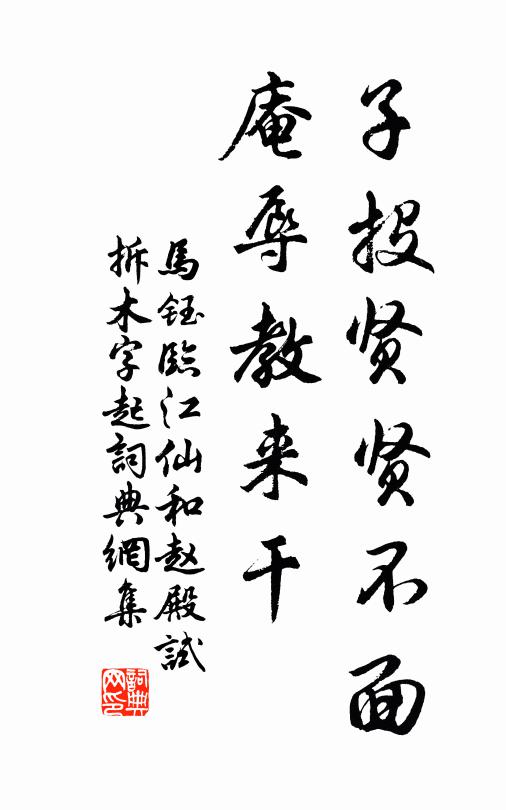 子投贤贤不面
庵辱教来干
馬鈺臨江仙和赵殿試
拆木字起詞典網集
詞典网印